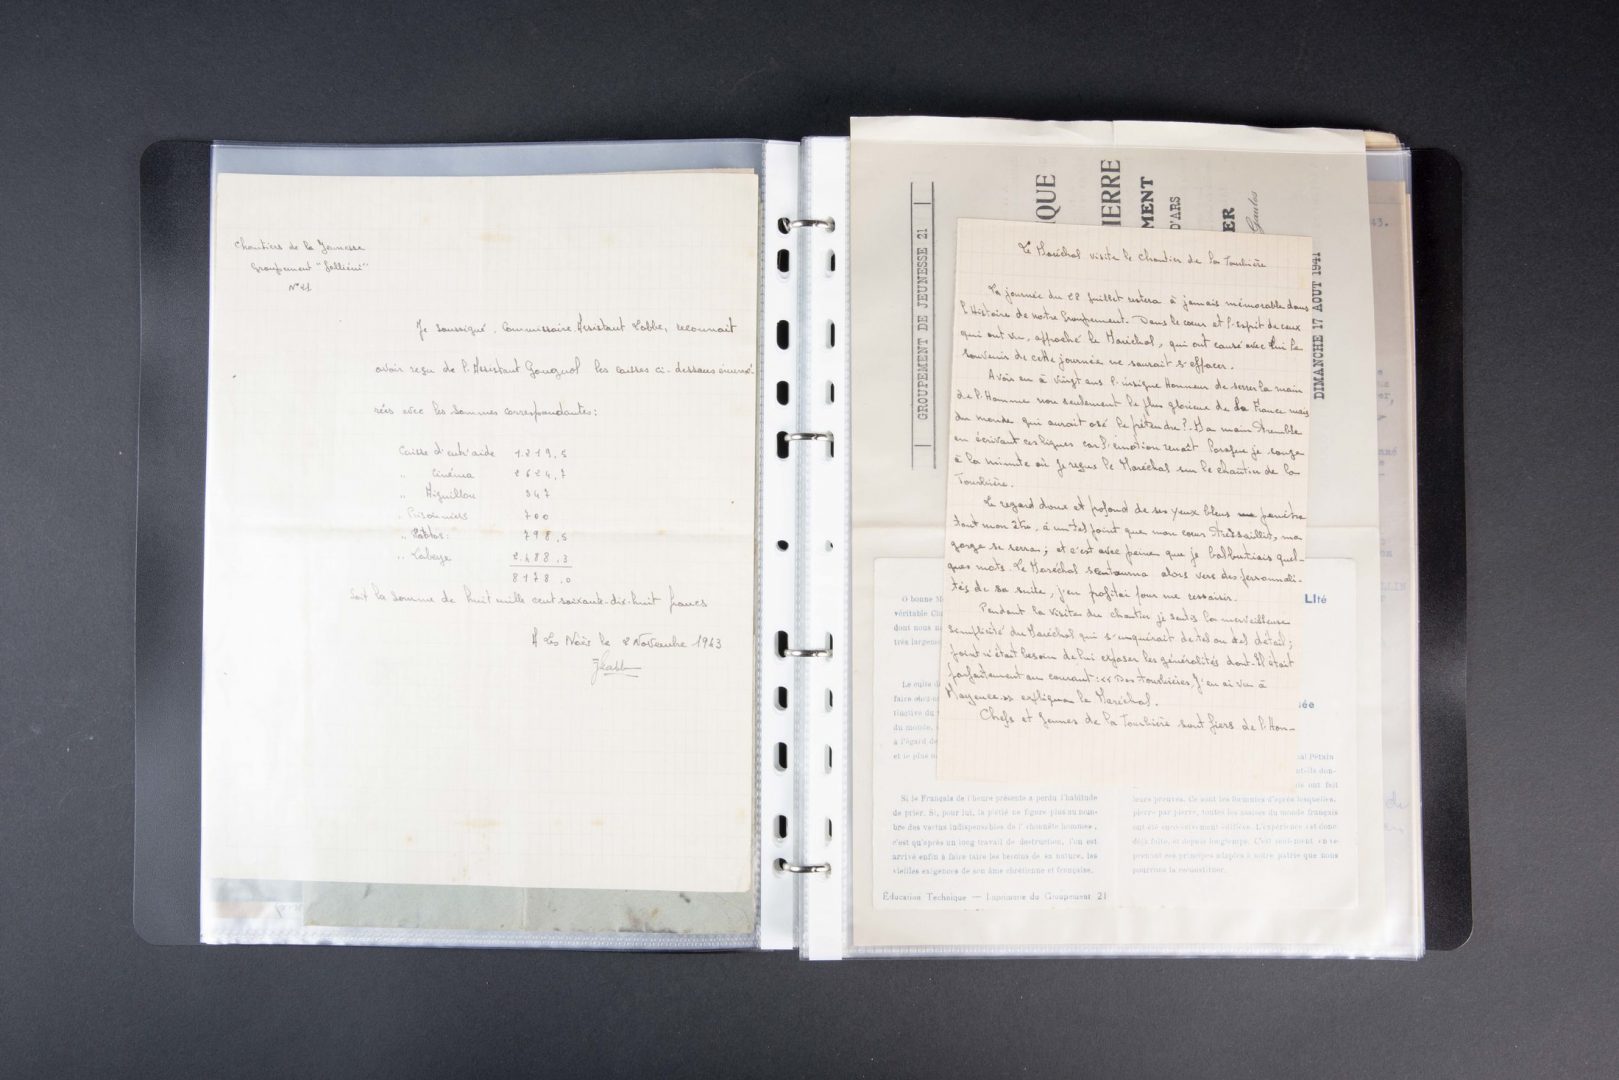 Chantiers de la Jeunesse
Groupement "Gallieni"
N° 21
Je soussigné, Commissaire Assistant Labbe, reconnait
avoir reçu de l'Assistant Gougnol les caisses ci-dessous énumé-
rées avec les sommes correspondantes:
Caisse d'entr'aide 1.219,5
" Cinéma 2624,7
" Aiguillon 347
" Prisonniers 700
798,5
" Labeye 2.488,3
8178,0
Soit la somme de huit mille cent soixante-dix-huit francs
A Les Noës le 2 Novembre 1943
GROUPEMENT DE JEUNESSE 21
QUE
IERRE
MENT
D'ARS
ER
Gautès
DIMANCHE 17 AOUT 1941
Le Maréchal visite le Chantier de la Tourbière
La journée du 22 Juillet restera à jamais mémorable dans
l'Histoire de notre Groupement. Dans le cœur et l'esprit de ceux
qui ont vu, approché le Maréchal, qui ont causé avec lui le
souvenir de cette journée ne saurait s'effacer.
Avoir eu à vingt ans l'insigne Honneur de serrer la main
de l'Homme non seulement le plus glorieux de La France mais
du monde qui aurait osé le prétendre? Ma main tremble
en écrivant ces lignes car l'émotion renaît lorsque je songe
à la minute où je reçus le Maréchal sur le chantier de la
Tourbière.
Le regard doux et profond de ses yeux bleus me pénétra
tout mon être, à un tel point que mon cœur tressaillit, ma
gorge se serra; et c'est avec peine que je balbutiais quel-
ques mots. Le Maréchal s'entourna alors vers des personnali-
tés de sa suite, j'en profitai pour me ressaisir.
Pendant la visite du chantier je sentis la merveilleuse
Simplicité du Maréchal qui s'enquérait de tel ou tel détail;
point n'était besoin de lui exposer les généralités dont Il était
parfaitement au courant: "Des tourbières, J'en ai vu à
Mayence" expliqua le Maréchal.
Chefs et Jeunes de la Tourbière sont fiers de l'Hon-
O bonne
véritable
dont nous
très largement
Le culte
faire chez
du monde,
à l'égard de
et le plus
Si le Français de l'heure présente a perdu l'habitude
de prier. Si, pour lui, la piété ne figure plus au nom-
bre des vertus indispensables de l'« honnête homme »,
c'est qu'après un long travail de destruction, l'on est
arrivé enfin à faire taire les besoins de sa nature, les
vieilles exigences de son âme chrétienne et française.
Lité
ée
Pétain
ont fait
leurs preuves. Ce sont les formules d'après lesquelles,
pierre par pierre, toutes les assises du monde français
ont été successivement édifiées. L'expérience est donc
déjà faite, et depuis longtemps. C'est seulement en re-
prenant ces principes adaptés à notre patrie que nous
pourrons la reconstituer.
Éducation Technique — Imprimerie du Groupement 21
43.